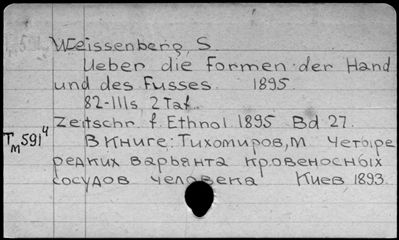 Weissenberg, S.
Ueber die Formen der Hand
und des Fusses. 1895.
82-111s. 2 Taf.
Zeitschr. f. Ethnol 1895 Bd 27.
Tм 591⁴ В книге: Тихомиров, М Четыре
редких варьянта кровеносных
сосудов человека Киев 1893.